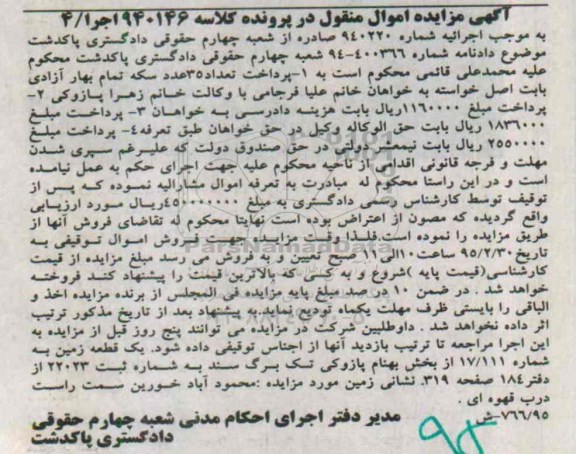 آگهی مزایده اموال منقول در پرونده کلاسه ۹۴۰۱۴۶اجرا/۴
به موجب اجرائیه شماره ۹۴۰۲۲۰ صادره از شعبه چهارم حقوقی دادگستری پاکدشت
موضوع دادنامه شماره ۴۰۰۳۶۶-۹۴ شعبه چهارم حقوقی دادگستری پاکدشت محکوم
علیه محمدعلی قائمی محکوم است به ۱-پرداخت تعداد۳۵عدد سکه تمام بهار آزادی
بابت اصل خواسته به خواهان خانم علیا فرجامی با وکالت خانم زهرا پازوکی ۲-
پرداخت مبلغ ۱۱۶۰۰۰۰ریال بابت هزینه دادرسی به خواهان ۳- پرداخت مبلغ
۱۸۳۶۰۰۰ ریال بابت حق الوکاله وکیل در حق خواهان طبق تعرفه۴- پرداخت مبلغ
۲۵۵۰۰۰۰ ریال بابت نیمعشر دولتی در حق صندوق دولت که علیرغم سپری شدن
مهلت و فرجه قانونی اقدامی از ناحیه محکوم علیه جهت اجرای حکم به عمل نیامده
است و در این راستا محکوم له مبادرت به تعرفه اموال مشارالیه نموده که پس از
توقیف توسط کارشناس رسمی دادگستری به مبلغ ۴۵۰۰۰۰۰۰۰ریال مورد ارزیابی
واقع گردیده که مصون از اعتراض بوده است نهایتا محکوم له تقاضای فروش آنها از
طریق مزایده را نموده است.فلذا وقت مزایده جهت فروش اموال توقیفی به
تاریخ ۹۵/۲/۳۰ ساعت۱۰الی۱۱ صبح تعیین و به فروش می رسد مبلغ مزایده از قیمت
کارشناسی(قیمت پایه )شروع و به کسی که بالاترین قیمت را پیشنهاد کند فروخته
خواهد شد . در ضمن ۱۰ در صد مبلغ پایه مزایده فی المجلس از برنده مزایده اخذ و
الباقی را بایستی ظرف مهلت یکماه تودیع نماید.به پیشنهاد بعد از تاریخ مذکور ترتیب
اثر داده نخواهد شد . داوطلبین شرکت در مزایده می توانند پنج روز قبل از مزایده به
این اجرا مراجعه تا ترتیب بازدید آنها از اجناس توقیفی داده شود. یک قطعه زمین به
شماره ۱۷/۱۱۱ از بخش بهنام پازوکی تک برگ سند به شماره ثبت ۲۲۰۲۳ از
دفتر۱۸۴ صفحه ۳۱۹. نشانی زمین مورد مزایده :محمود آباد خورین سمت راست
درب قهوه ای .
۷۶۶/۹۵-ش
مدیر دفتر اجرای احکام مدنی شعبه چهارم حقوقی
دادگستری پاکدشت
ParsNamadData